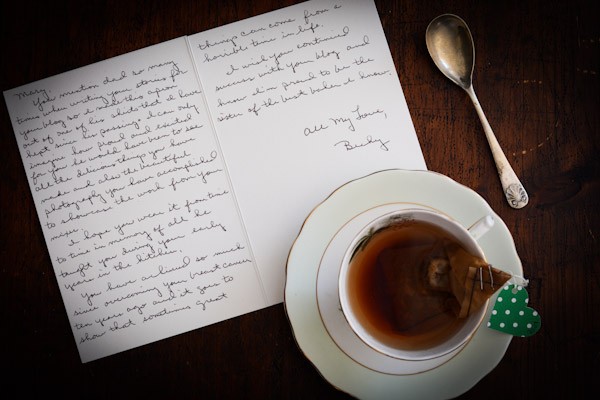 Mary,
You mention dad so many
times when writing your stories for
your blog so I made this apron
out of one of his shirts that I have
kept since his passing. I can only
imagine how proud and excited
for you he would have been to see
all the delicious things you have
made and also the beautiful
photography you have accomplished
to showcase the work from your
mixer.
I hope you wear it from time
to time in memory of all he
taught you during your early
years in the kitchen.
You have achieved so much
since overcoming your breast cancer
ten years ago and it goes to
show that sometimes great
things can come from a
horrible time in life.
I wish you continued
success with your blog and
know I'm proud to be the
sister of the best baker I know.
All My Love,